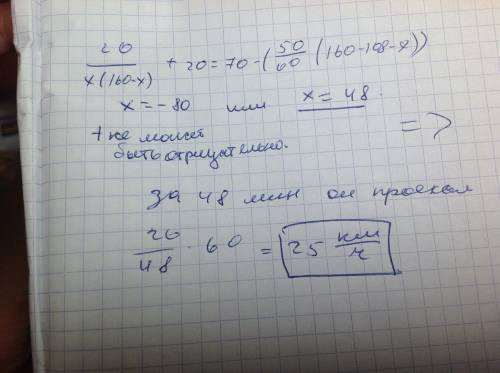 20/x(160-x) + 20 = 70 - (50/60 (160-108-x))
x = -80 или x = 48.
t не может =>
быть отрицательно.
за 48 мин он проехал
20/48 · 60 = 25 км/ч